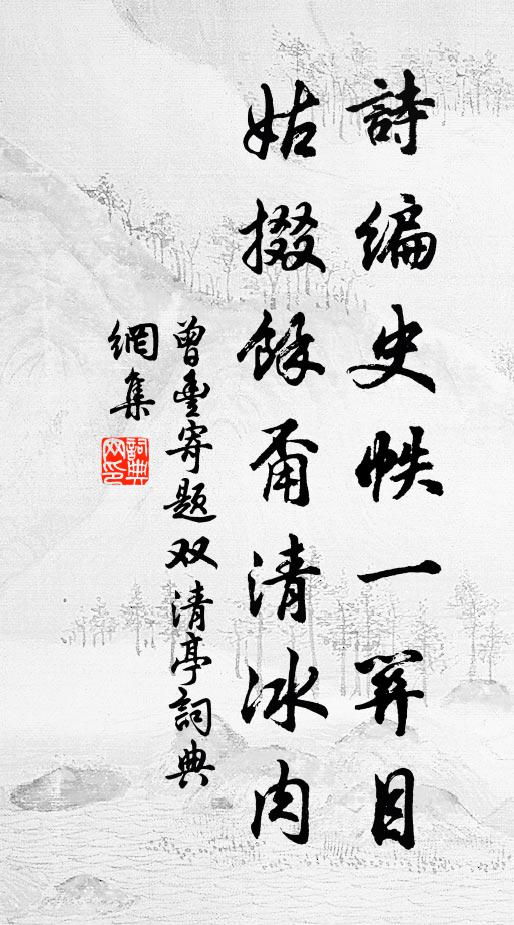 詩編史帙一開目
姑掇餘清冰肉
曾豐寄题双清亭詞典
網集
詞典網印